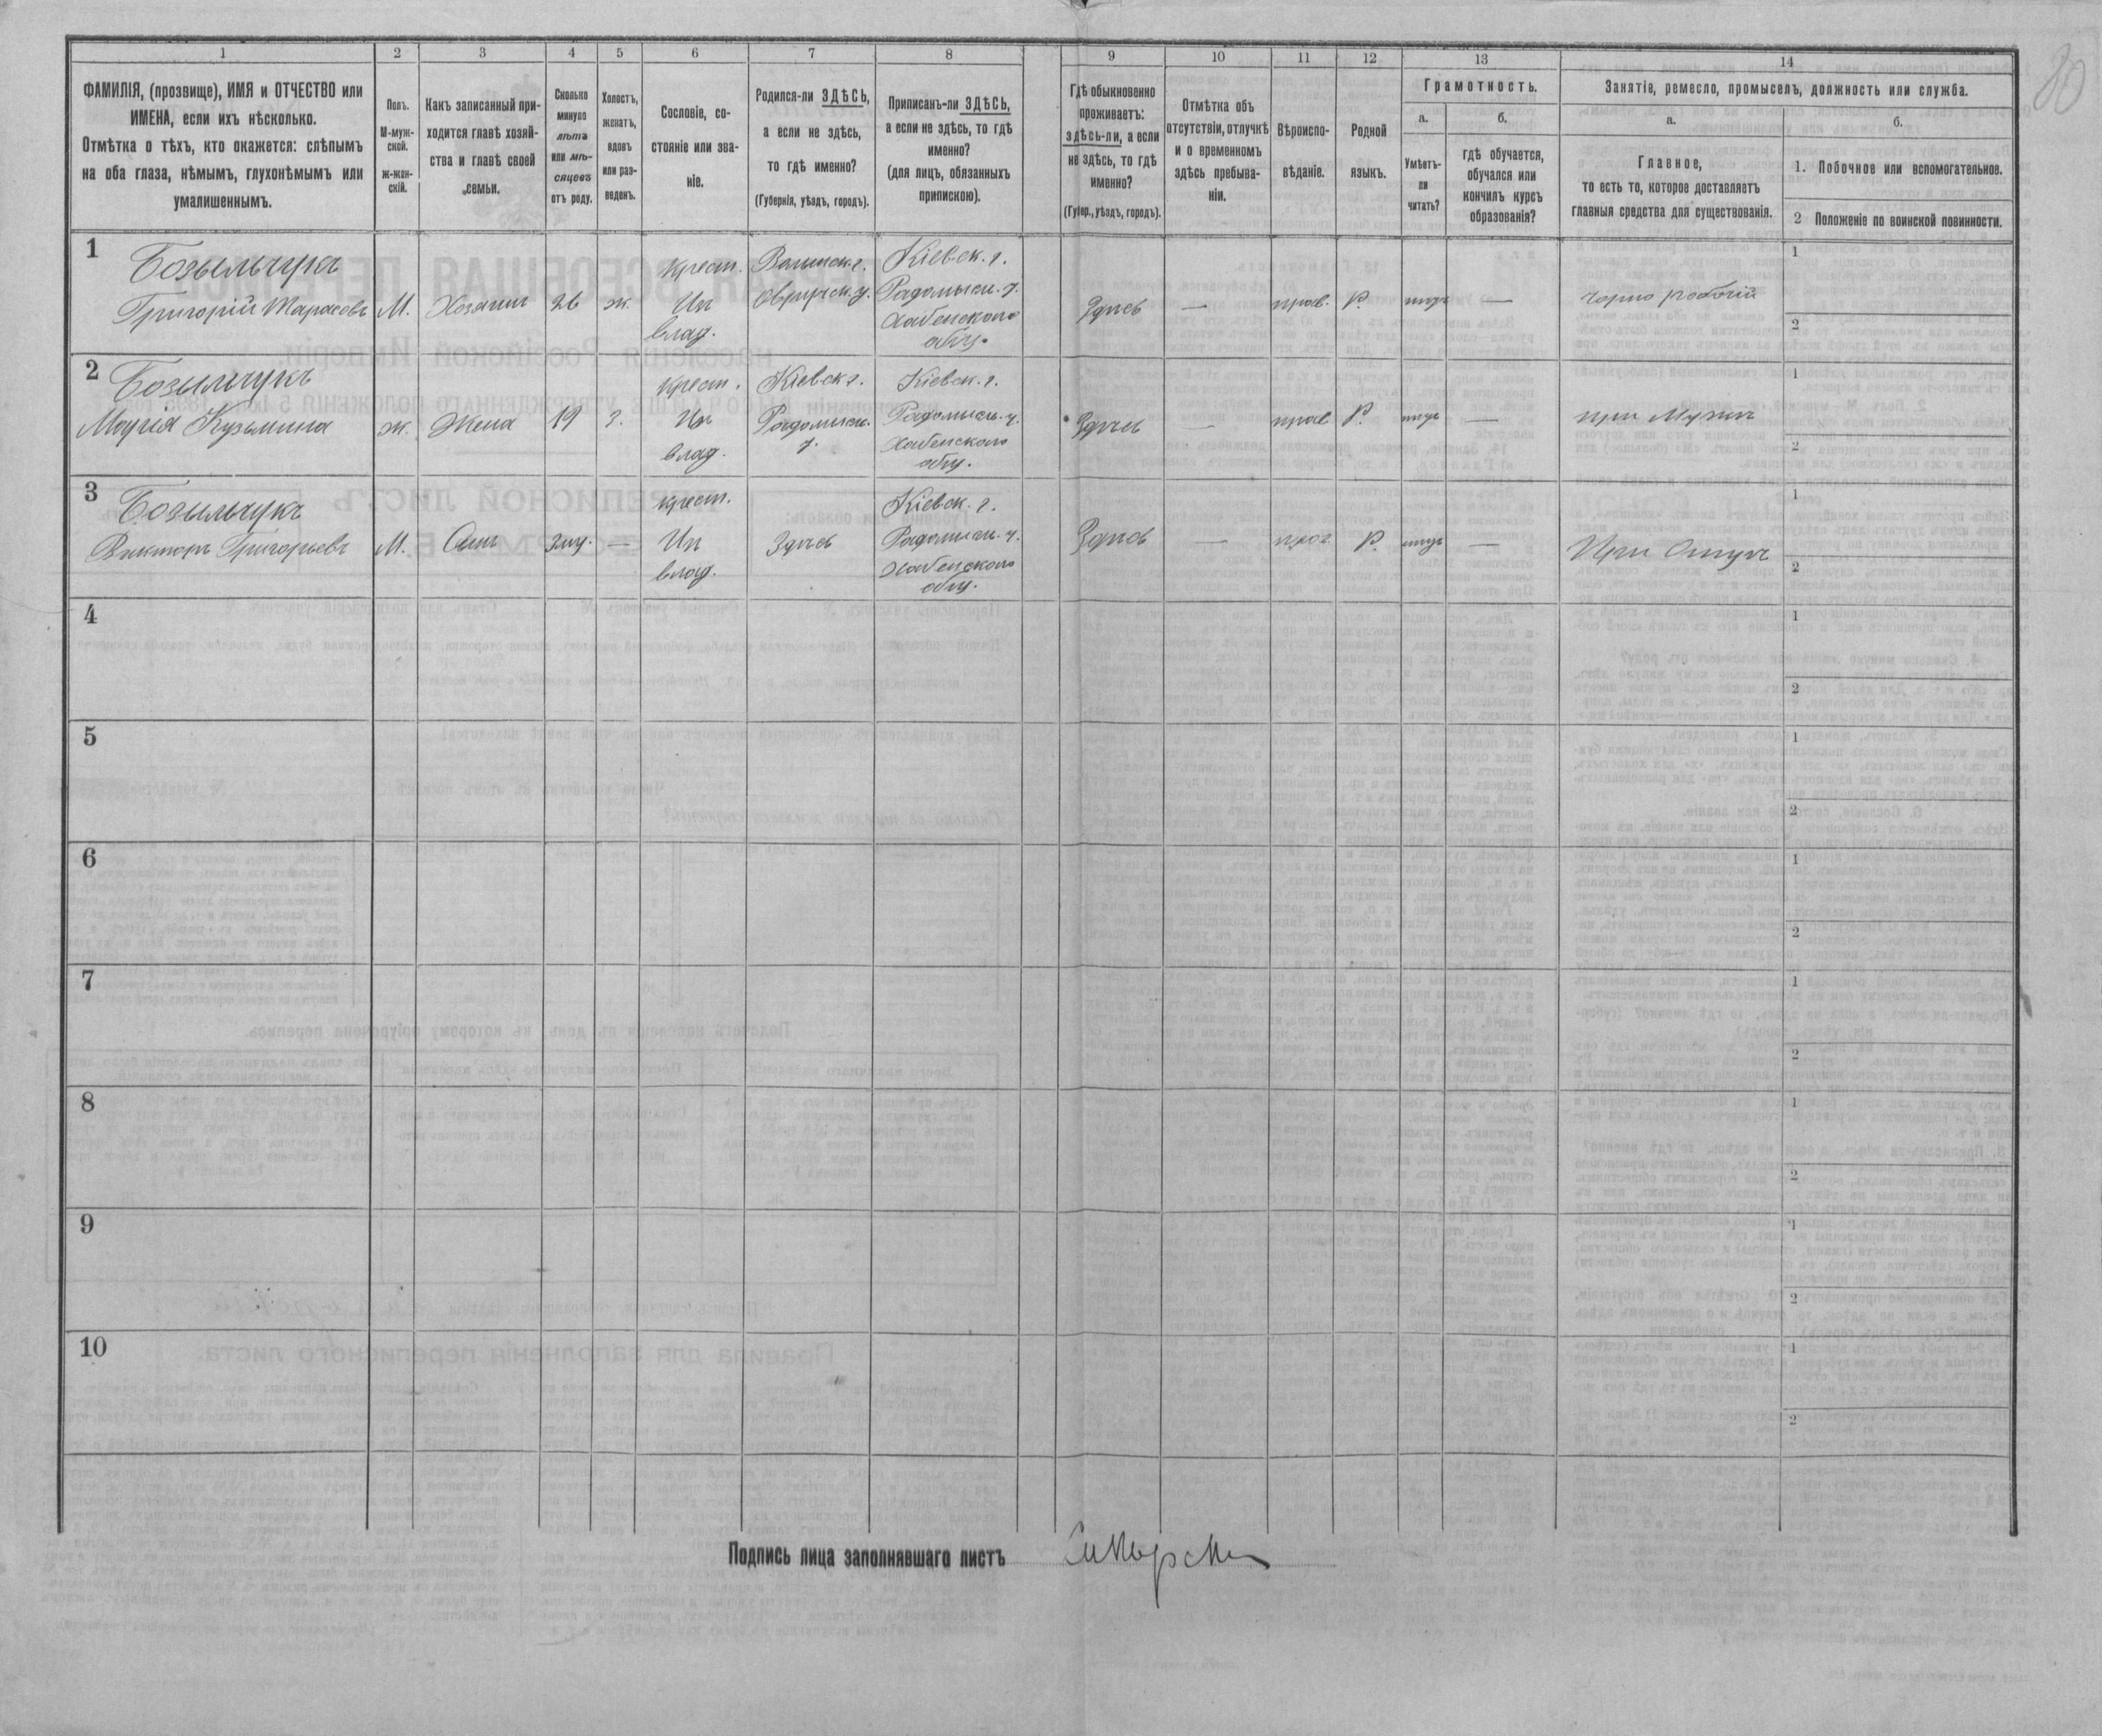 80
1 2 3 4 5 6 7 8 9 10 11 12 13 14
ФАМИЛІЯ, (прозвище), ИМЯ и ОТЧЕСТВО или
ИМЕНА, если ихъ нѣсколько.
Отмѣтка о тѣхъ, кто окажется: слѣпымъ
на оба глаза, нѣмымъ, глухонѣмымъ или
умалишеннымъ.
Полъ.
М-муж-
ской.
ж-жен-
скій.
Какъ записанный при-
ходится главѣ хозяй-
ства и главѣ своей
семьи.
Сколько
минуло
лѣтъ
или мѣ-
сяцевъ
отъ роду.
Холостъ,
женатъ,
вдовъ
или раз-
веденъ.
Сословіе, со-
стояніе или зва-
ніе.
Родился-ли ЗДѢСЬ,
а если не здѣсь,
то гдѣ именно?
(Губернія, уѣздъ, городъ).
Приписанъ-ли ЗДѢСЬ,
а если не здѣсь, то гдѣ
именно?
(для лицъ, обязанныхъ
припискою).
Гдѣ обыкновенно
проживаетъ:
здѣсь-ли, а если
не здѣсь, то гдѣ
именно?
(Губер., уѣздъ, городъ).
Отмѣтка объ
отсутствіи, отлучкѣ
и о временномъ
здѣсь пребыва-
ніи.
Вѣроиспо-
вѣданіе.
Родной
языкъ.
Грамотность.
а.
Умѣетъ-
ли
читать?
б.
гдѣ обучается,
обучался или
кончилъ курсъ
образованія?
Занятіе, ремесло, промыселъ, должность или служба.
а.
Главное,
то есть то, которое доставляетъ
главныя средства для существованія.
б.
1. Побочное или вспомогательное.
2 Положеніе по воинской повинности.
1
Бозыльчукъ
Григорій Тарасовъ
М.
Хозяинъ
26
ж.
Крест.
Ил
влад.
Волынск. г.
Овручск. у.
Кіевск. г.
Радомысл. у.
Хабенскаго
общ.
Здѣсь
—
прав.
Р.
—
Чорно робочій
1
2
2
Бозыльчукъ
Марія Кузьмина
ж.
Жена
19
з.
Крест.
влад.
Кіевск г.
Радомысл.
у.
Кіевск. г.
Радомысл. у.
Хабенскаго
общ.
Здѣсь
—
прав
Р.
—
при Мужѣ
1
2
3
Бозыльчукъ
Викторъ Григорьевъ
М.
Сынъ
—
крест.
влад.
Здѣсь
Кіевск. г.
Радомысл. у.
Хабенскаго
общ.
Здѣсь
—
Р.
—
При Отцѣ
1
2
4
1
2
5
1
2
6
1
2
7
1
2
8
1
2
9
1
2
10
1
2
Подпись лица заполнявшаго листъ